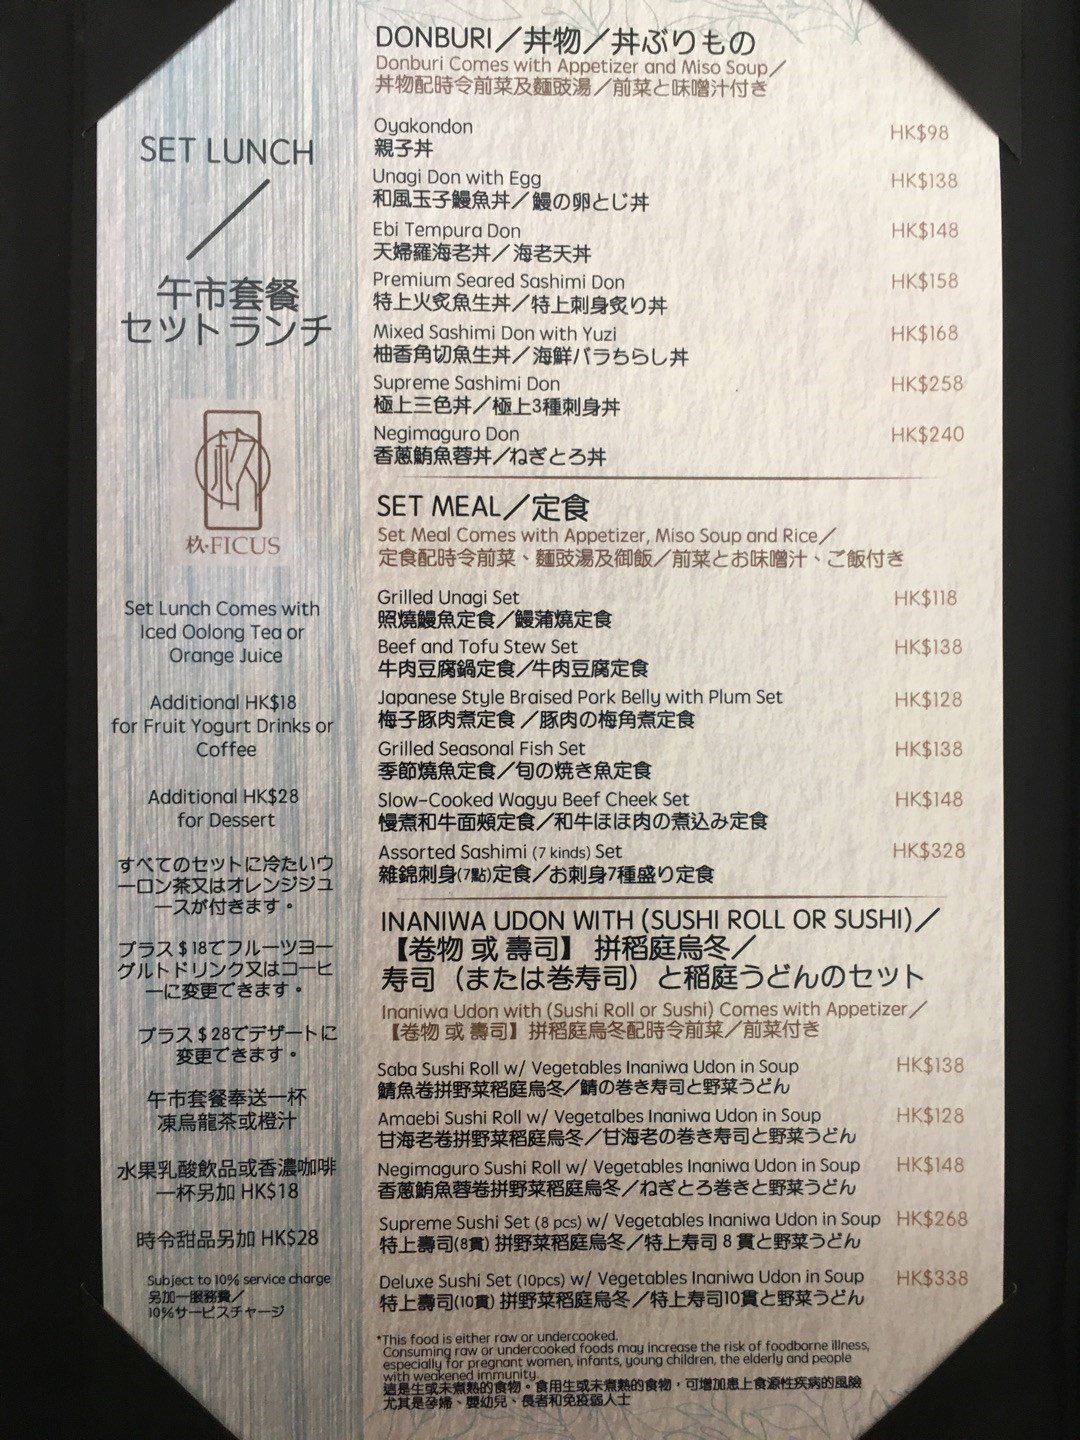 SET LUNCH
／
午市套餐
セットランチ
杦
杦·FICUS
Set Lunch Comes with
Iced Oolong Tea or
Orange Juice
Additional HK$18
for Fruit Yogurt Drinks or
Coffee
Additional HK$28
for Dessert
すべてのセットに冷たいウ
ーロン茶又はオレンジジュ
ースが付きます。
プラス$18でフルーツヨー
グルトドリンク又はコーヒ
ーに変更できます。
プラス$28でデザートに
変更できます。
午市套餐奉送一杯
凍烏龍茶或橙汁
水果乳酸飲品或香濃咖啡
一杯另加 HK$18
時令甜品另加 HK$28
Subject to 10% service charge
另加一服務費／
10%サービスチャージ
DONBURI／丼物／丼ぶりもの
Donburi Comes with Appetizer and Miso Soup／
丼物配時令前菜及麵豉湯／前菜と味噌汁付き
Oyakondon HK$98
親子丼
Unagi Don with Egg HK$138
和風玉子鰻魚丼／鰻の卵とじ丼
Ebi Tempura Don HK$148
天婦羅海老丼／海老天丼
Premium Seared Sashimi Don HK$158
特上火炙魚生丼／特上刺身炙り丼
Mixed Sashimi Don with Yuzi HK$168
柚香角切魚生丼／海鮮バラちらし丼
Supreme Sashimi Don HK$258
極上三色丼／極上3種刺身丼
Negimaguro Don HK$240
香蔥鮪魚蓉丼／ねぎとろ丼
SET MEAL／定食
Set Meal Comes with Appetizer, Miso Soup and Rice／
定食配時令前菜、麵豉湯及御飯／前菜とお味噌汁、ご飯付き
Grilled Unagi Set HK$118
照燒鰻魚定食／鰻蒲燒定食
Beef and Tofu Stew Set HK$138
牛肉豆腐鍋定食／牛肉豆腐定食
Japanese Style Braised Pork Belly with Plum Set HK$128
梅子豚肉煮定食／豚肉の梅角煮定食
Grilled Seasonal Fish Set HK$138
季節燒魚定食／旬の焼き魚定食
Slow-Cooked Wagyu Beef Cheek Set HK$148
慢煮和牛面頰定食／和牛ほほ肉の煮込み定食
Assorted Sashimi (7 kinds) Set HK$328
雜錦刺身(7點)定食／お刺身7種盛り定食
INANIWA UDON WITH (SUSHI ROLL OR SUSHI)／
【卷物 或 壽司】 拼稻庭烏冬／
寿司（または巻寿司）と稲庭うどんのセット
Inaniwa Udon with (Sushi Roll or Sushi) Comes with Appetizer／
【卷物 或 壽司】拼稻庭烏冬配時令前菜／前菜付き
Saba Sushi Roll w/ Vegetables Inaniwa Udon in Soup HK$138
鯖魚卷拼野菜稻庭烏冬／鯖の巻き寿司と野菜うどん
Amaebi Sushi Roll w/ Vegetalbes Inaniwa Udon in Soup HK$128
甘海老卷拼野菜稻庭烏冬／甘海老の巻き寿司と野菜うどん
Negimaguro Sushi Roll w/ Vegetables Inaniwa Udon in Soup HK$148
香蔥鮪魚蓉卷拼野菜稻庭烏冬／ねぎとろ巻きと野菜うどん
Supreme Sushi Set (8 pcs) w/ Vegetables Inaniwa Udon in Soup HK$268
特上壽司(8貫) 拼野菜稻庭烏冬／特上寿司 8 貫と野菜うどん
Deluxe Sushi Set (10pcs) w/ Vegetables Inaniwa Udon in Soup HK$338
特上壽司(10貫) 拼野菜稻庭烏冬／特上寿司10貫と野菜うどん
*This food is either raw or undercooked.
Consuming raw or undercooked foods may increase the risk of foodborne illness,
especially for pregnant women, infants, young children, the elderly and people
with weakened immunity.
這是生或未煮熟的食物。食用生或未煮熟的食物，可增加患上食源性疾病的風險
尤其是孕婦、嬰幼兒、長者和免疫弱人士